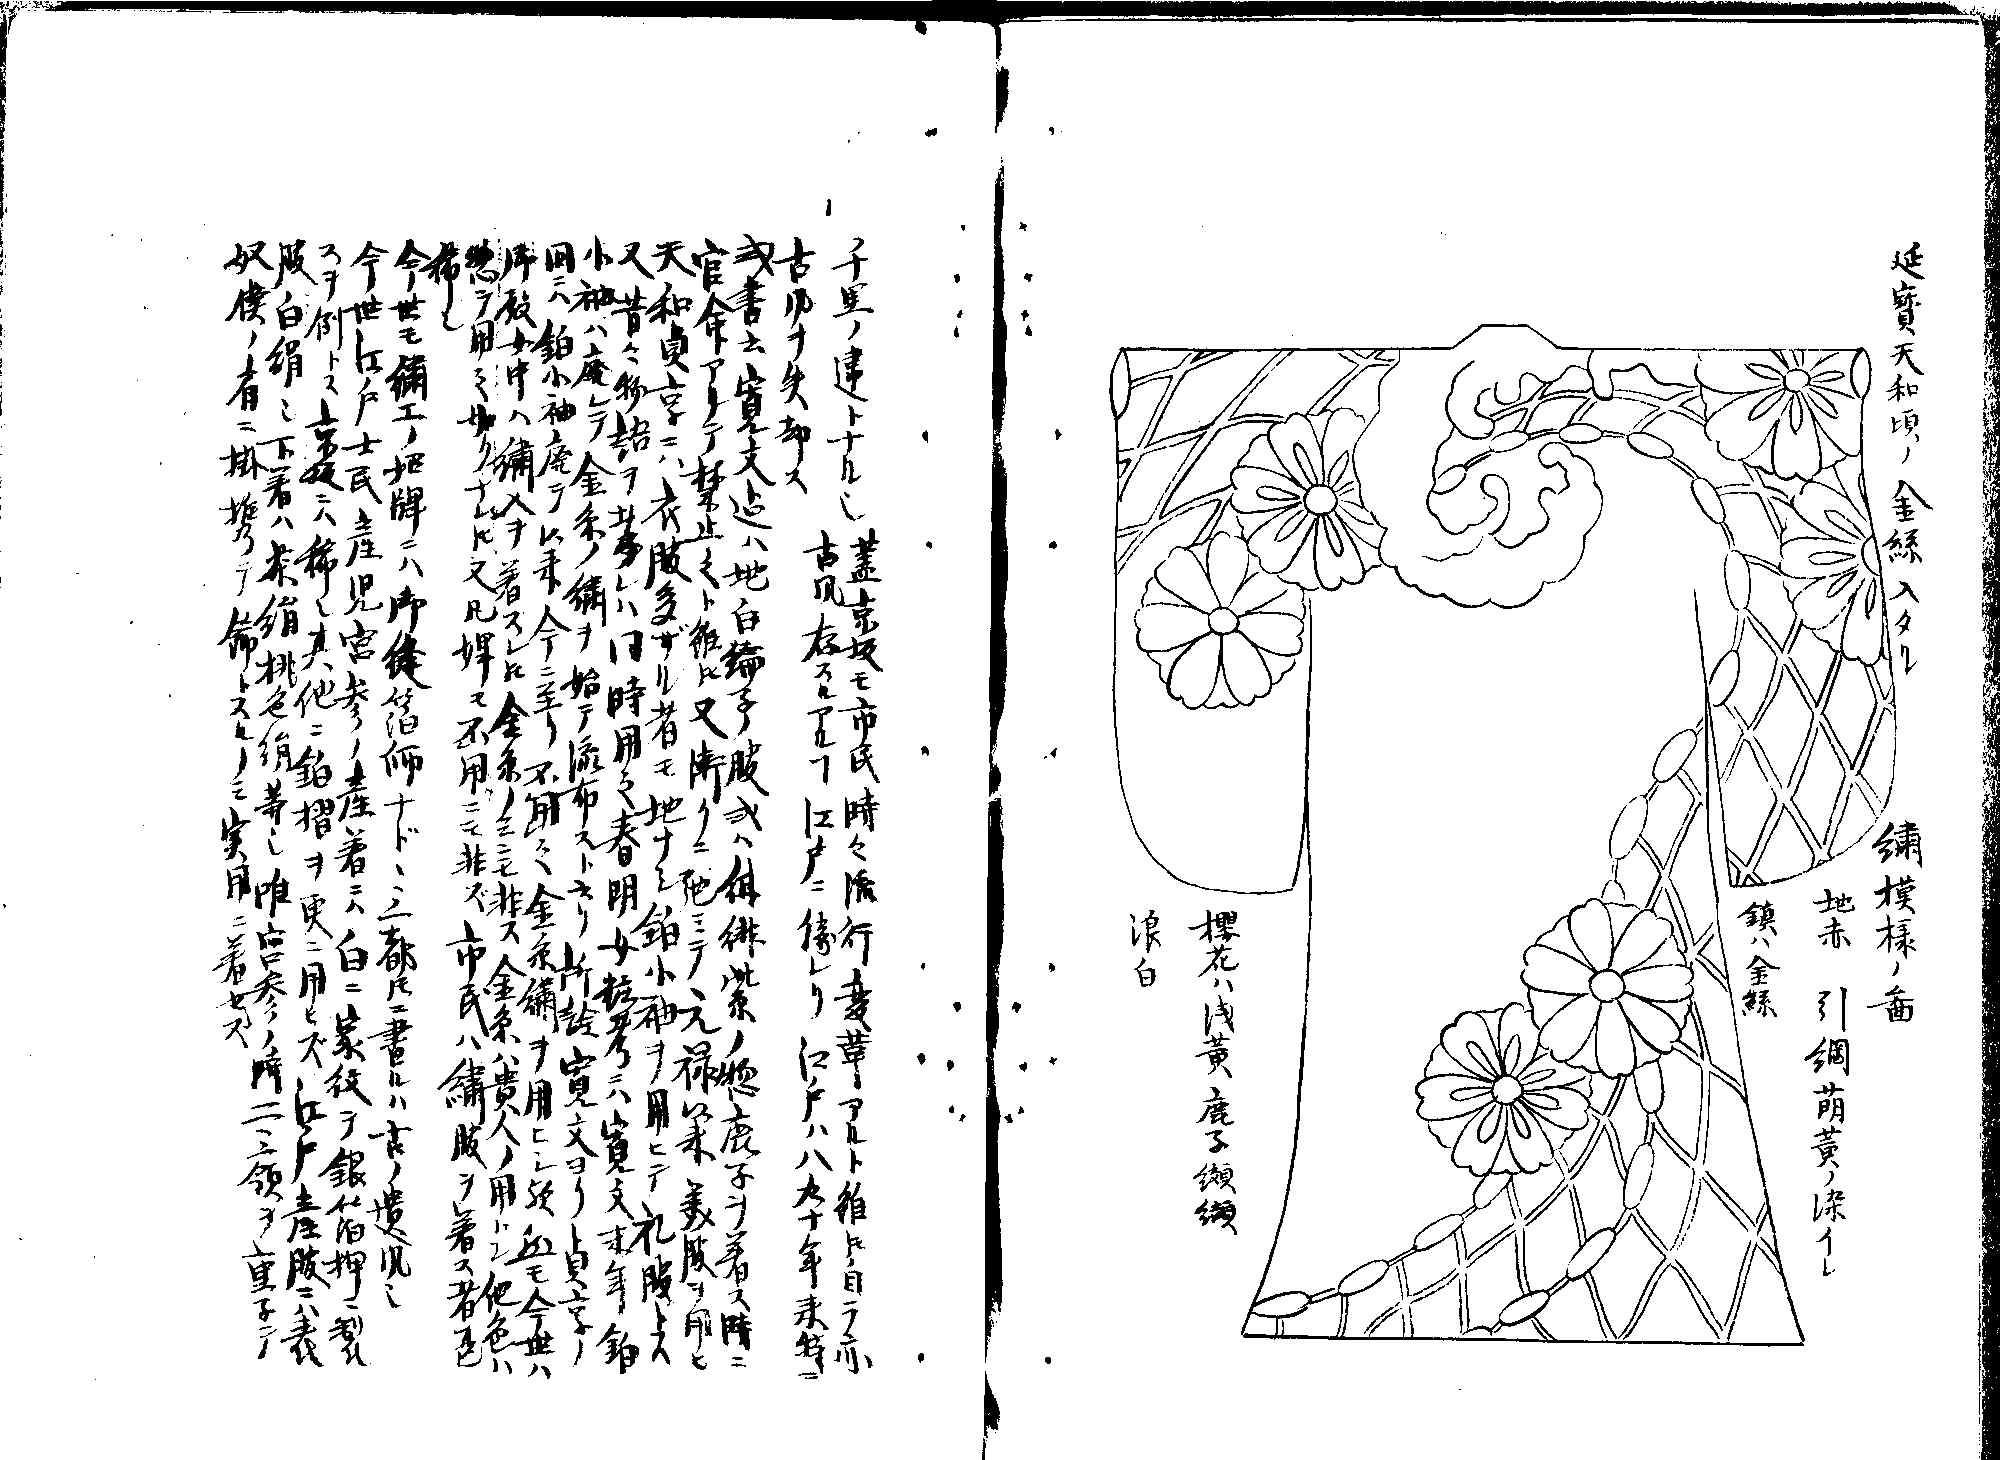 延寳天和頃ノ金絲入タル
繍模様ノ圖
地赤　引綱萌黄ノ染イレ
鎮ハ金絲
櫻花ハ浅黄鹿子纐纈
浪白
千里ノ違トナル也
蓋京坂モ市民時々流行変革アルト雖ドモ自ラ亦
古風ヲ失却ス
古風存スルアルヿ江戸ニ倍レリ江戸ハ八九十年来特ニ
或書云寛文迄ハ地白綸子ノ服或ハ緋紫ノ惣鹿子ヲ着ス時ニ
官命アリテ禁止之ト雖ドモ又漸クニ弛ミテ元禄以来美服ヲ用ヒ
天和貞享ニハ衣服多ザル者モ地ナシ鉑小袖ヲ用ヒテ礼服トス
又昔々物語ヲ 同時用之春明女粧考ニハ寛文末年鉑
小袖ハ廃レテ金糸ノ繍ヲ始テ流布ストアリ所詮寛文ヨリ貞享ノ
間ニハ鉑小袖廃テ以来今ニ至リ不用之金糸繍ヲ用ヒシ 今世ハ
御殿女中ハ繍入ヲ着スレドモ金糸ノミニモ非ス金糸ハ貴人ノ用トシ他色ハ
惣テ用之 ナレドモ又凡婢モ不用ニモ非ズ市民ハ繍服ヲ着ス者甚
稀也
今世モ繍工ノ招牌ニハ御縫箔師ナド三都トモニ書ルハ古ノ遺風也
今世江戸士民産児宮参ノ産着ニハ白ニ家紋ヲ銀箔押ニ製
スヲ例トス京坂ニハ稀也其他ニ鉑摺ヲ更ニ用ヒズ江戸産服ニハ表
服白絹也下着ハ茶絹桃色絹等也唯宮参ノ時二三領ヲ重子テ
奴僕ノ肩ニ掛携ヘテ飾トスルノミ実用ニ着セズ